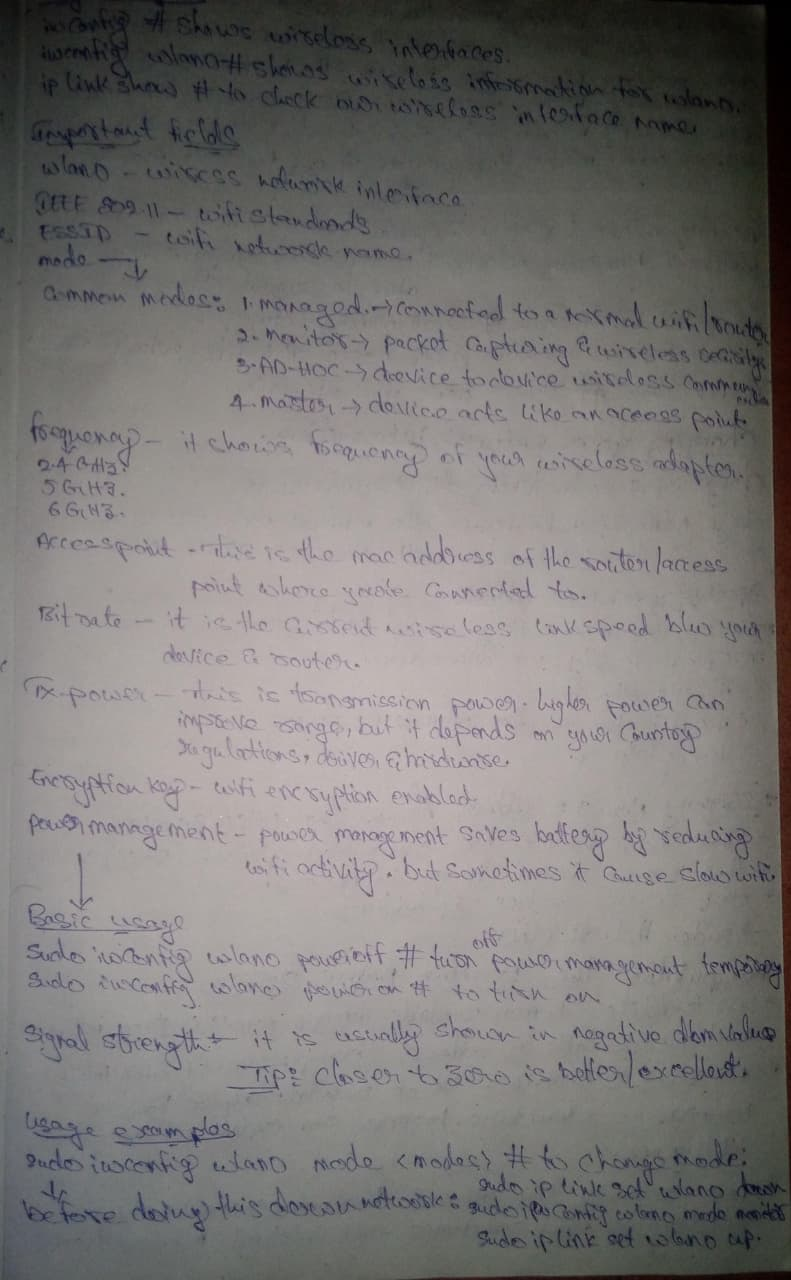 iwconfig # shows wireless interfaces.
iwconfig wlan0 # shows wireless information for wlan0.
ip link show # to check our wireless interface name.
Important fields
wlan0 - wireess network interface
IEEE 802.11 - wifi standrads
ESSID - wifi network name.
mode →
Common modes: 1. managed. → connected to a normal wifi/router
2. monitor → packet capturing & wireless
3. AD-HOC → deevice to device wireless
4. master → device acts like an access point
frequency - it shows frequency of your wireless adapter.
2.4 GHz.
5 GHz.
6 GHz.
Access point - This is the mac address of the router/access
point where you're connected to.
Bit rate - it is the current wireless link speed b/w your
device & router.
Tx-power - This is transmission power. higher power can
improve range, but it depends on your Country
regulations, driver, & hardware
Encryption key - wifi encryption enabled
power management - power management saves battery by reducing
wifi activity. but sometimes it cause slow wifi.
Basic usage
sudo iwconfig wlan0 power off # turn off power management temporary
sudo iwconfig wlan0 power on # to turn on
Signal strength - it is usually shown in negative dbm value
Tip: closer to zero is better/excellent.
Usage examples
sudo iwconfig wlan0 mode <modes> # to change mode:
before doing this down network: sudo ip link set wlan0 down
sudo iwconfig wlan0 mode monitor
sudo ip link set wlan0 up.